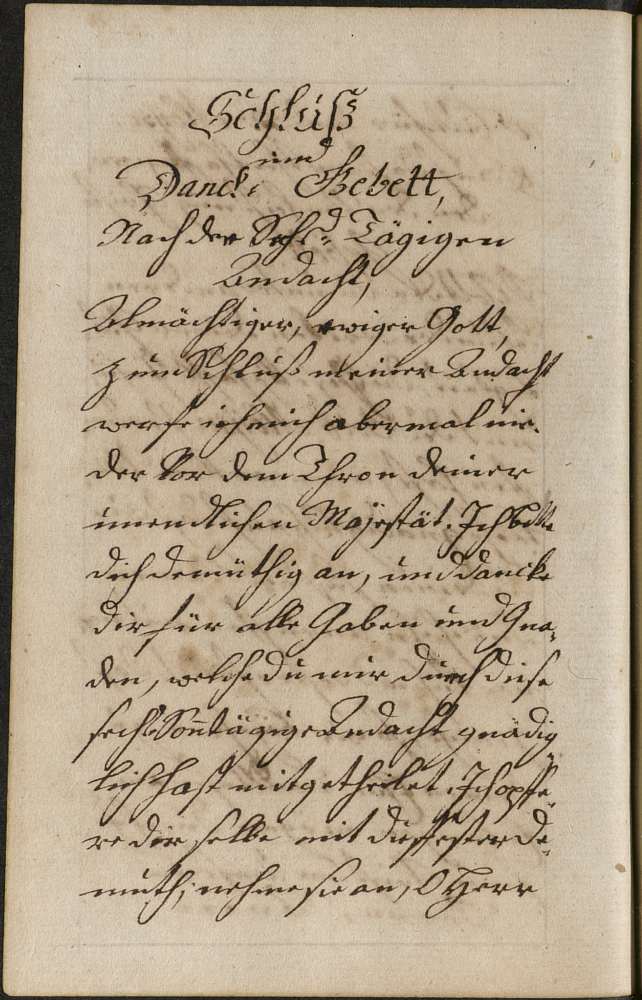 Schluß
und
Danck- Gebett,
Nach der Sechs- Tägigen
Andacht,
Allmächtiger, ewiger Gott,
zum Schluß meiner Andacht
werfe ich mich abermal nie-
der Vor dem Thron deiner
unendlichen Majestät. Ich bette
dich demüthig an, und dancke
dir für alle Gaben und Gna-
den, welche du mir durch diese
sechs Soñtägige Andacht gnädig-
lich hast mitgetheilet. Ich opffe-
re dir selbe mit tieffester De-
muth; nehme sie an, O Herr